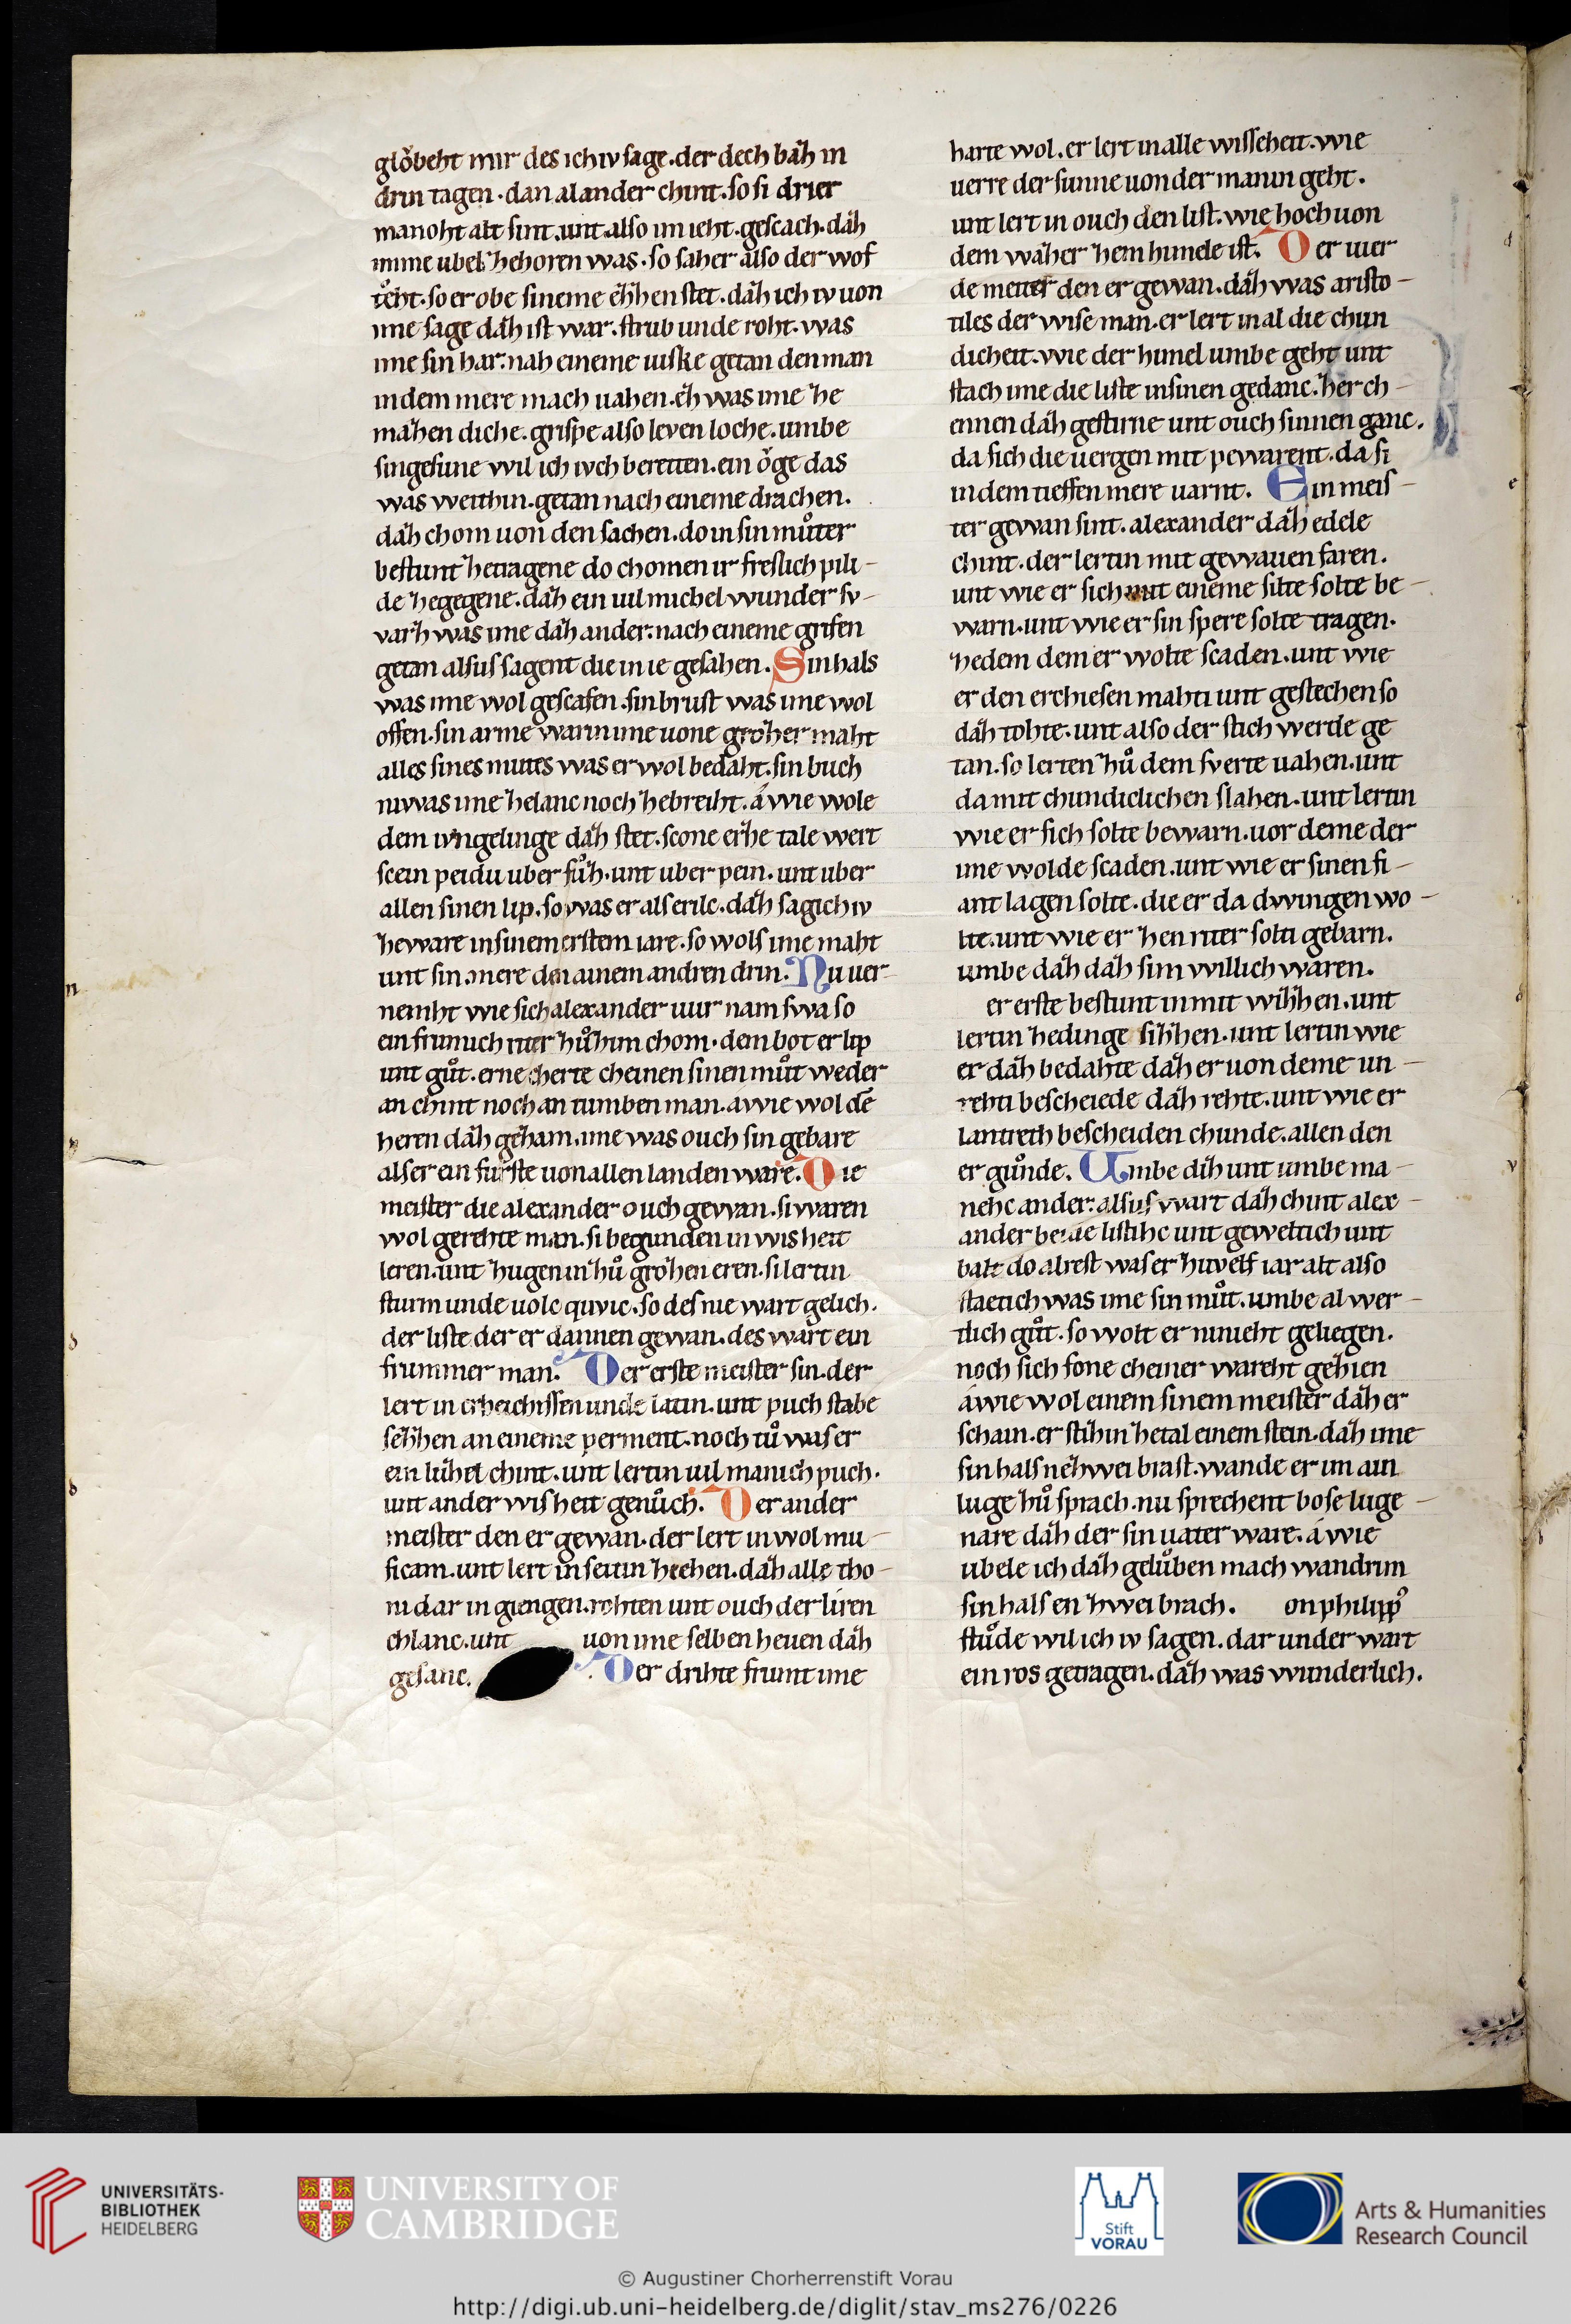 glǒbeht mir des ich iv ſage. der dech baz in
drin tagen. dan al ander chint. ſo ſi drier
manoht alt ſint. unt alſo im ieht geſcach. daz
imme ubel zehoren was. ſo ſaher alſo der wof
tǒht. ſo er obe ſineme ezzhen ſtet. daz ich iv uon
ime ſage daz iſt war. ſtrub unde roht was
ime ſin har. nah eineme uiſke getan den man
in dem mere mach uahen. ez was ime ze
mazen diche. griſpe alſo leven loche. umbe
ſin geſune wil ich ivch bereiten. ein ǒge das
was weithin. getan nach eineme drachen.
daz chom uon den ſachen. do in ſin můter
beſtunt zetragene do chomen ir freſlich pili-
de zegegene. daz ein uil michel wunder ſv-
varz was ime daz ander. nach eineme grifen
getan alſuſ ſagent die in ie geſahen. Sin hals
was ime wol geſcafen. ſin bruſt was ime wol
offen. ſin arme warin ime uone grozer maht
alles ſines mutes was er wol bedaht. ſin buch
niwas ime zelanc noch zebreiht. á wie wole
dem ivngelinge daz ſtet. ſcone erze tale wert
ſcein peidu uber fůz. unt uber pein. unt uber
allen ſinen lip. ſo was er alſ erilc. daz ſagich iv
zeware in ſinem erſtem iare. ſo wolſ ime maht
unt ſin mere den ainem andren drin. Nu uer-
nemht wie ſich alexander uur nam ſwa ſo
ein frumich riter zů him chom. dem bot er lip
unt gůt. erne cherte cheinen ſinen můt weder
an chint noch an tumben man. awie wol dē
heren daz gezam. ime was ouch ſin gebare
alſ er ein furſte uon allen landen ware. Die
meiſter die alexander ouch gewan. ſi waren
wol gerehte man. ſi begunden in wisheit
leren. unt zugen in zů grozen eren. ſi lertin
ſturm unde uolc quvic. ſo deſ nie wart gelich.
der liſte der er dannen gewan. des wart ein
frummer man. Der erſte meiſter ſin. der
lert in crheichiſſen unde latin. unt puch ſtabe
ſezzhen an eineme perment. noch tů waſ er
ein luzhel chint. unt lertin uil manich puch.
unt ander wisheit genůch. Der ander
meiſter den er gewan. der lert in wol mu-
ſicam. unt lert in ſeitin zechen. daz alle tho-
ni dar in giengen. rohten unt ouch der liren
chlanc. unt uon ime ſelben heuen daz
geſanc. Der drihte frunt ime
harte wol. er lert in alle wiſſeheit. wie
uerre der ſunne uon der manin geht.
unt lert in ouch den liſt. wie hoch uon
dem wazer zem humele iſt. Der uier
de meiter den er gewan. daz was ariſto-
tiles der wiſe man. er lert in al die chun
dicheit. wie der himel umbe geht unt
ſtach ime die liſte in ſinen gedanc. zerch-
ennen daz geſtirne unt ouch ſinnen ganc.
da ſich die uergen mit pewarent. da ſi
in dem tieffen mere uarnt. Ein meiſ-
ter gewan ſint. alexander daz edele
chint. der lertin mit gewauen faren.
unt wie er ſich mit eineme ſilte ſolte be-
warn. unt wie er ſin ſpere ſolte tragen.
zedem dem er wolte ſcaden. unt wie
er den erchieſen mahti unt geſtechen ſo
daz tohte. unt alſo der ſtich werde ge
tan. ſo lerten zů dem ſverte uahen. unt
da mit chundiclichen ſlahen. unt lertin
wie er ſich ſolte bewarn. uor deme der
ime wolde ſcaden. unt wie er ſinen fi-
ant lagen ſolte. die er da dwingen wo-
lte. unt wie er zen riter ſolti gebarn.
umbe daz daz ſim willich waren.
er erſte beſtunt in mit wizzhen. unt
lertin zedinge ſizzhen. unt lertin wie
er daz bedahte daz er uon deme un-
rehti beſcheiede daz rehte. unt wie er
lantreth beſcheiden chunde. allen den
er gůnde. Umbe diz unt umbe ma-
nehc ander. alſuſ wart daz chint alex-
ander beide liſtihc unt geweltich unt
balt do alreſt waſ er zuvelf iar alt alſo
ſtaetich was ime ſin můt. umbe al wer-
tlich gůt. ſo wolt er ninieht geliegen.
noch ſich fone cheiner wareht gezien
áwie wol einem ſinem meiſter daz er
ſchain. er ſtiz in zetal einem ſtein. daz ime
ſin halſ nezwei braſt. wande er im ain
luge zů ſprach. nu ſprechent boſe luge-
nare daz der ſin uater ware. á wie
ubele ich daz gelůben mach wandrim
ſin halſ en zwei brach. on philipp᷒
ſtůde wil ich iv ſagen. dar under wart
ein ros getragen. daz was wunderlich.
n
d
e
v
UNIVERSITÄTS-
BIBLIOTHEK
HEIDELBERG
UNIVERSITY OF
CAMBRIDGE
Stift
VORAU
Arts & Humanities
Research Council
© Augustiner Chorherrenstift Vorau
http://digi.ub.uni-heidelberg.de/diglit/stav_ms276/0226